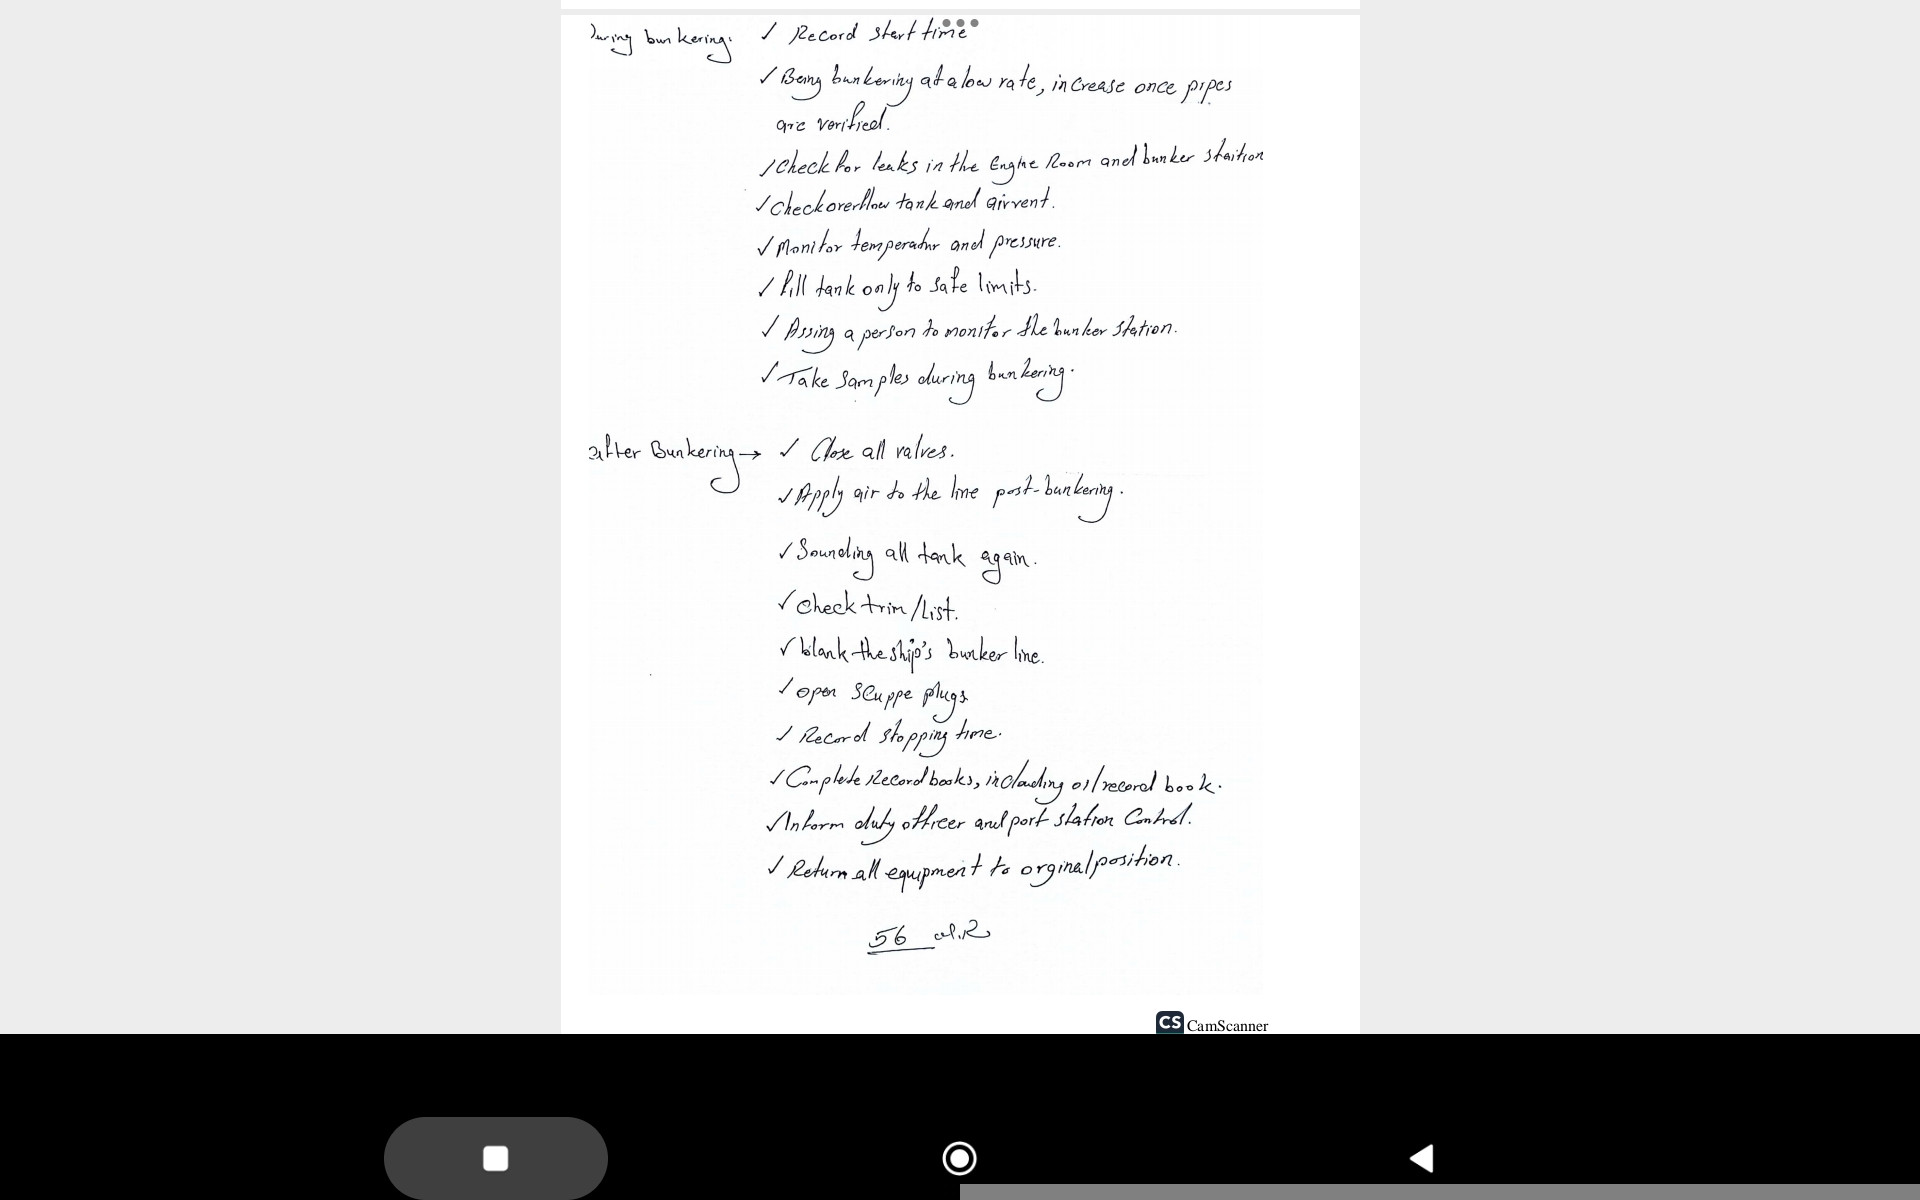 During bunkering: ✓ Record start time
✓ Being bunkering at a low rate, increase once pipes
are verified.
✓ Check for leaks in the Engine Room and bunker staition
✓ Check overflow tank and airvent.
✓ Monitor temperatur and pressure.
✓ fill tank only to safe limits.
✓ Assing a person to monitor the bunker station.
✓ Take samples during bunkering.
after Bunkering → ✓ Close all valves.
✓ Apply air to the line post-bunkering.
✓ Sounding all tank again.
✓ Check trim/List.
✓ blank the ship's bunker line.
✓ open Scuppe plugs
✓ Record stopping time.
✓ Complete Record books, inclouding oil record book.
✓ Inform duty officer and port station Control.
✓ Return all equipment to orginal position.
56
CS CamScanner